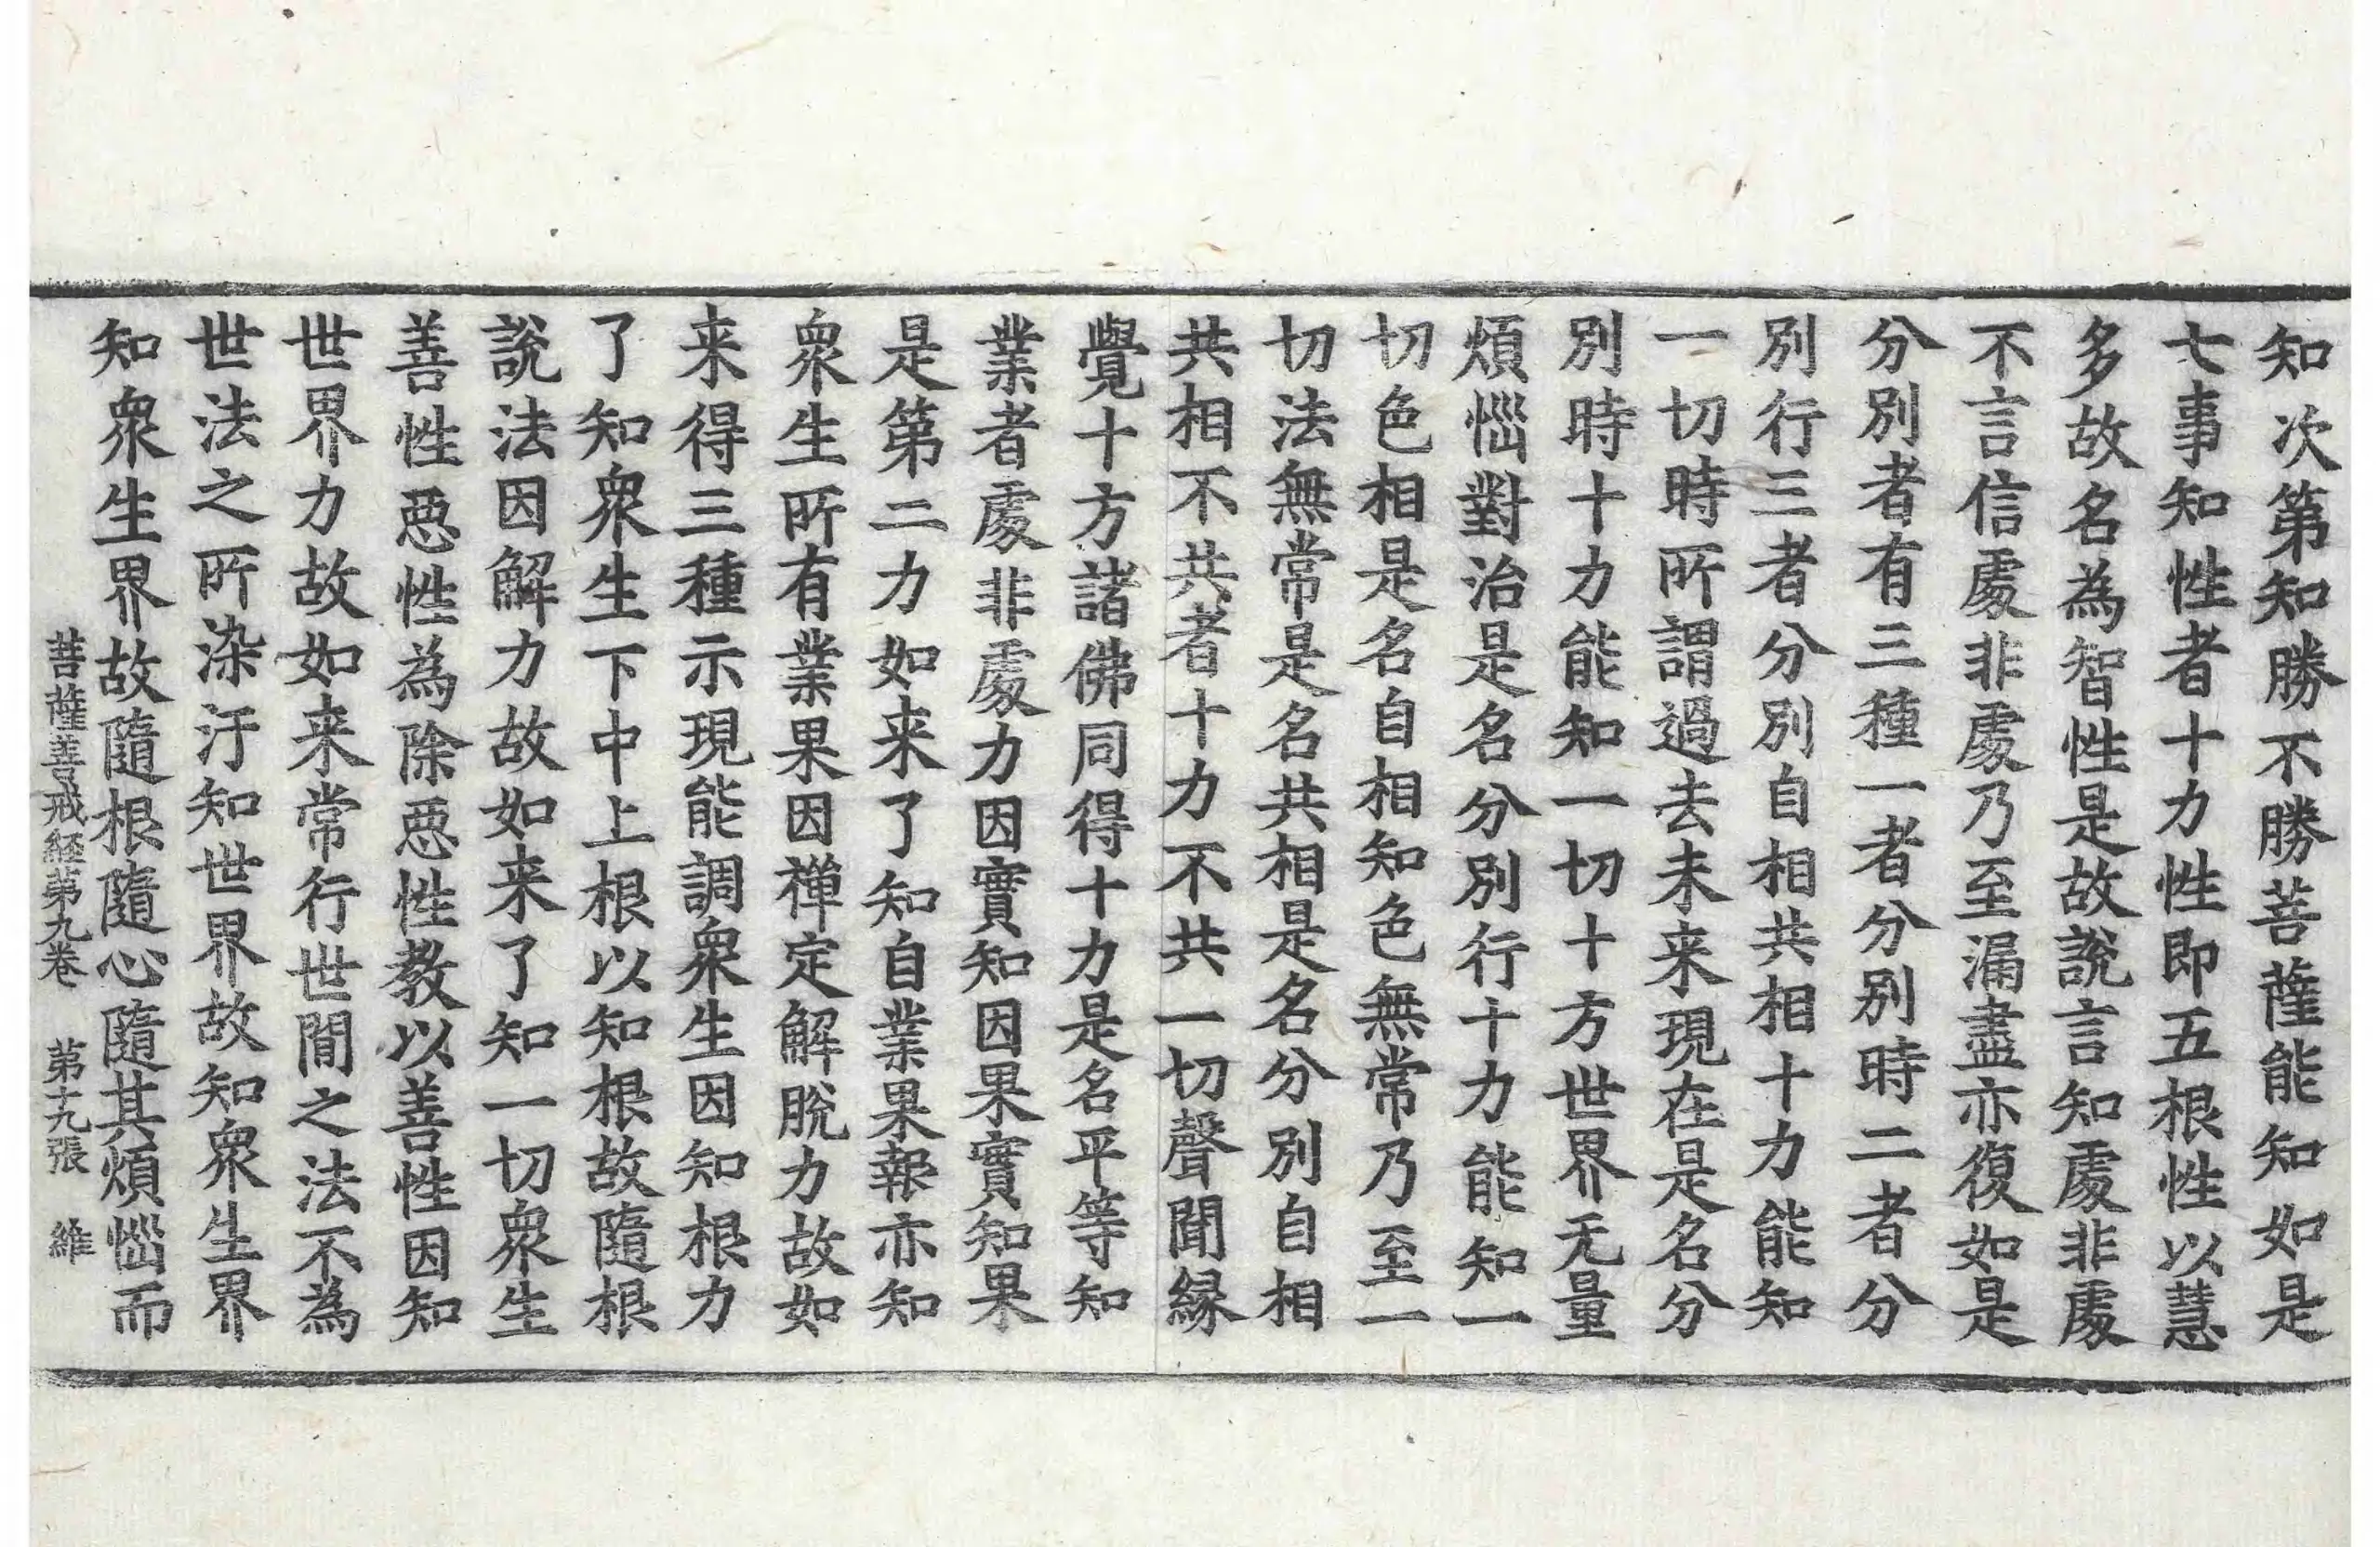 知次第知勝不勝菩薩能知如是
七事知性者十力性即五根性以慧
多故名為智性是故說言知處非處
不言信處非處乃至漏盡亦復如是
分別者有三種一者分別時二者分
別行三者分別自相共相十力能知
一切時所謂過去未来現在是名分
別時十力能知一切十方世界无量
煩惱對治是名分別行十力能知一
切色相是名自相知色無常乃至一
切法無常是名共相是名分別自相
共相不共者十力不共一切聲聞緣
覺十方諸佛同得十力是名平等知
業者處非處力因實知因果實知果
是第二力如来了知自業果報亦知
衆生所有業果因禅定解脫力故如
来得三種示現能調衆生因知根力
了知衆生下中上根以知根故隨根
說法因解力故如来了知一切衆生
善性惡性為除惡性教以善性因知
世界力故如来常行世間之法不為
世法之所染汙知世界故知衆生界
知衆生界故隨根隨心隨其煩惱而
菩薩善戒経第九卷 第十九張 維